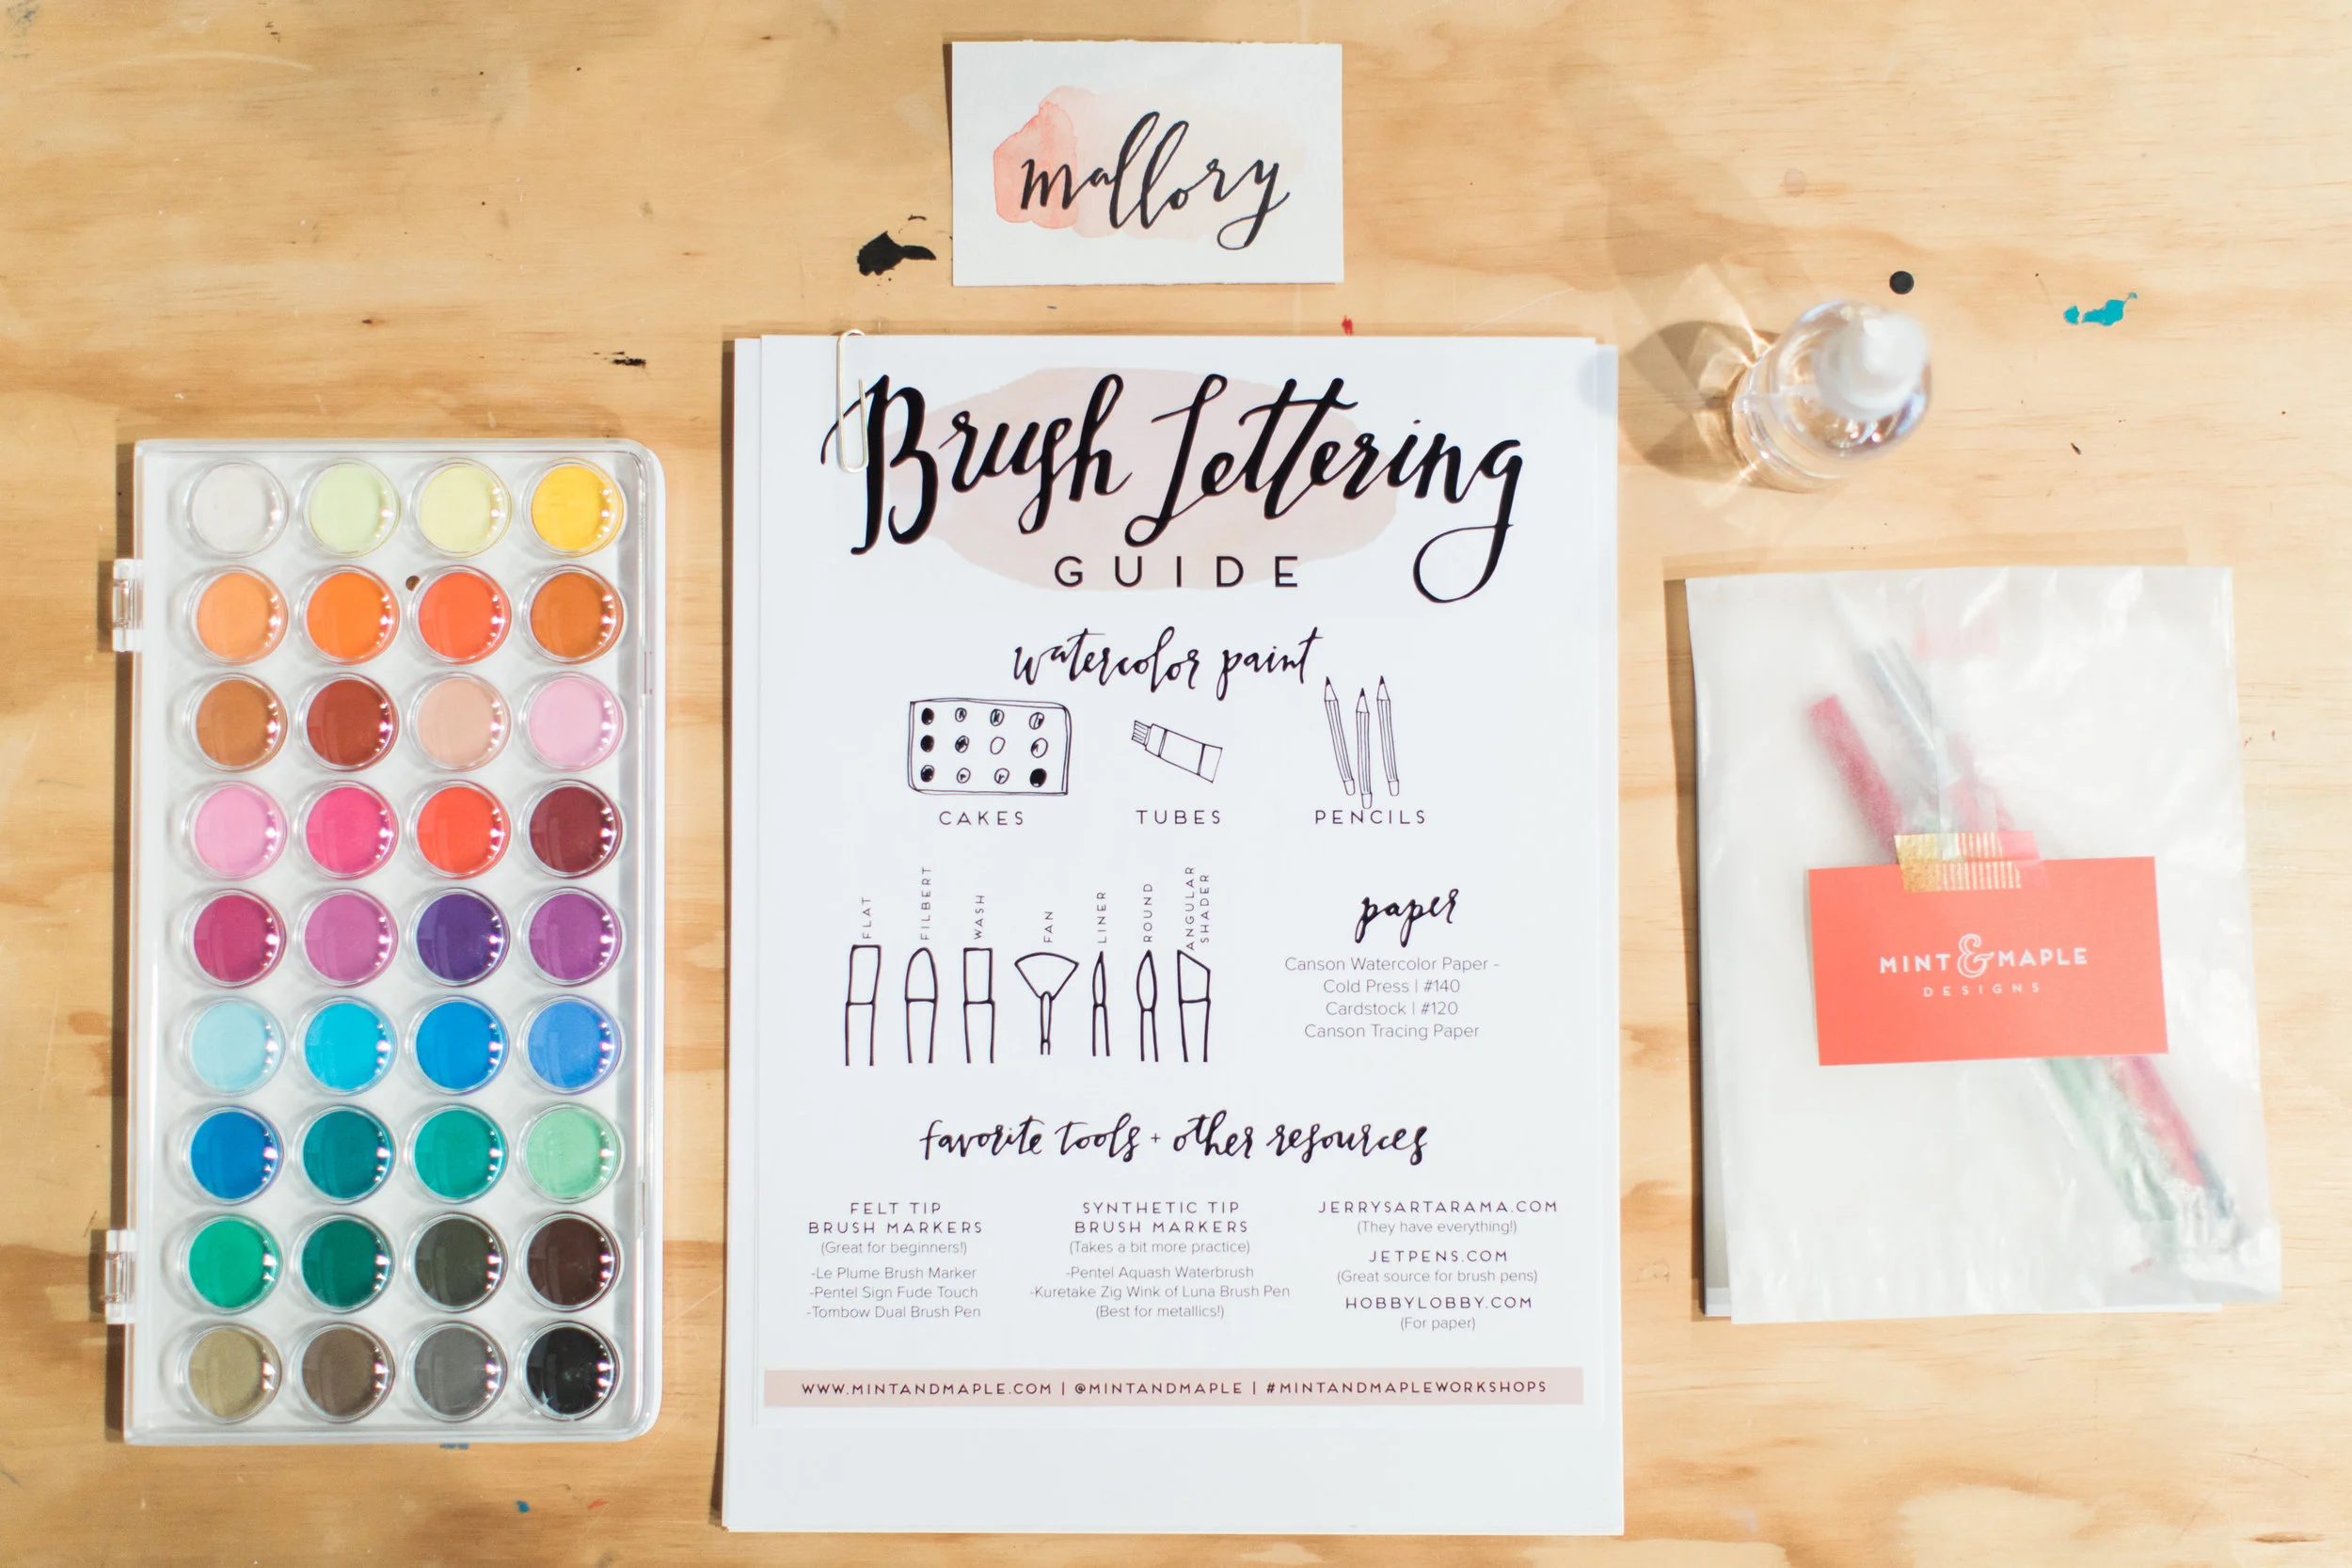 mallory
Brush Lettering
GUIDE
watercolor paint
CAKES
TUBES
PENCILS
FLAT
FILBERT
WASH
FAN
LINER
ROUND
ANGULAR
SHADER
paper
Canson Watercolor Paper -
Cold Press | #140
Cardstock | #120
Canson Tracing Paper
favorite tools + other resources
FELT TIP
BRUSH MARKERS
(Great for beginners!)
-Le Plume Brush Marker
-Pentel Sign Fude Touch
-Tombow Dual Brush Pen
SYNTHETIC TIP
BRUSH MARKERS
(Takes a bit more practice)
-Pentel Aquash Waterbrush
-Kuretake Zig Wink of Luna Brush Pen
(Best for metallics!)
JERRYSARTARAMA.COM
(They have everything!)
JETPENS.COM
(Great source for brush pens)
HOBBYLOBBY.COM
(For paper)
WWW.MINTANDMAPLE.COM | @MINTANDMAPLE | #MINTANDMAPLEWORKSHOPS
MINT & MAPLE
DESIGNS